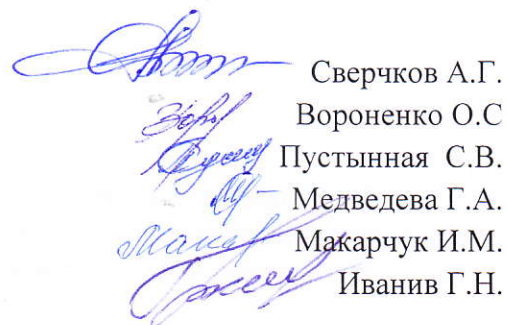 Сверчков А.Г.
Вороненко О.С
Пустынная С.В.
Медведева Г.А.
Макарчук И.М.
Иванив Г.Н.